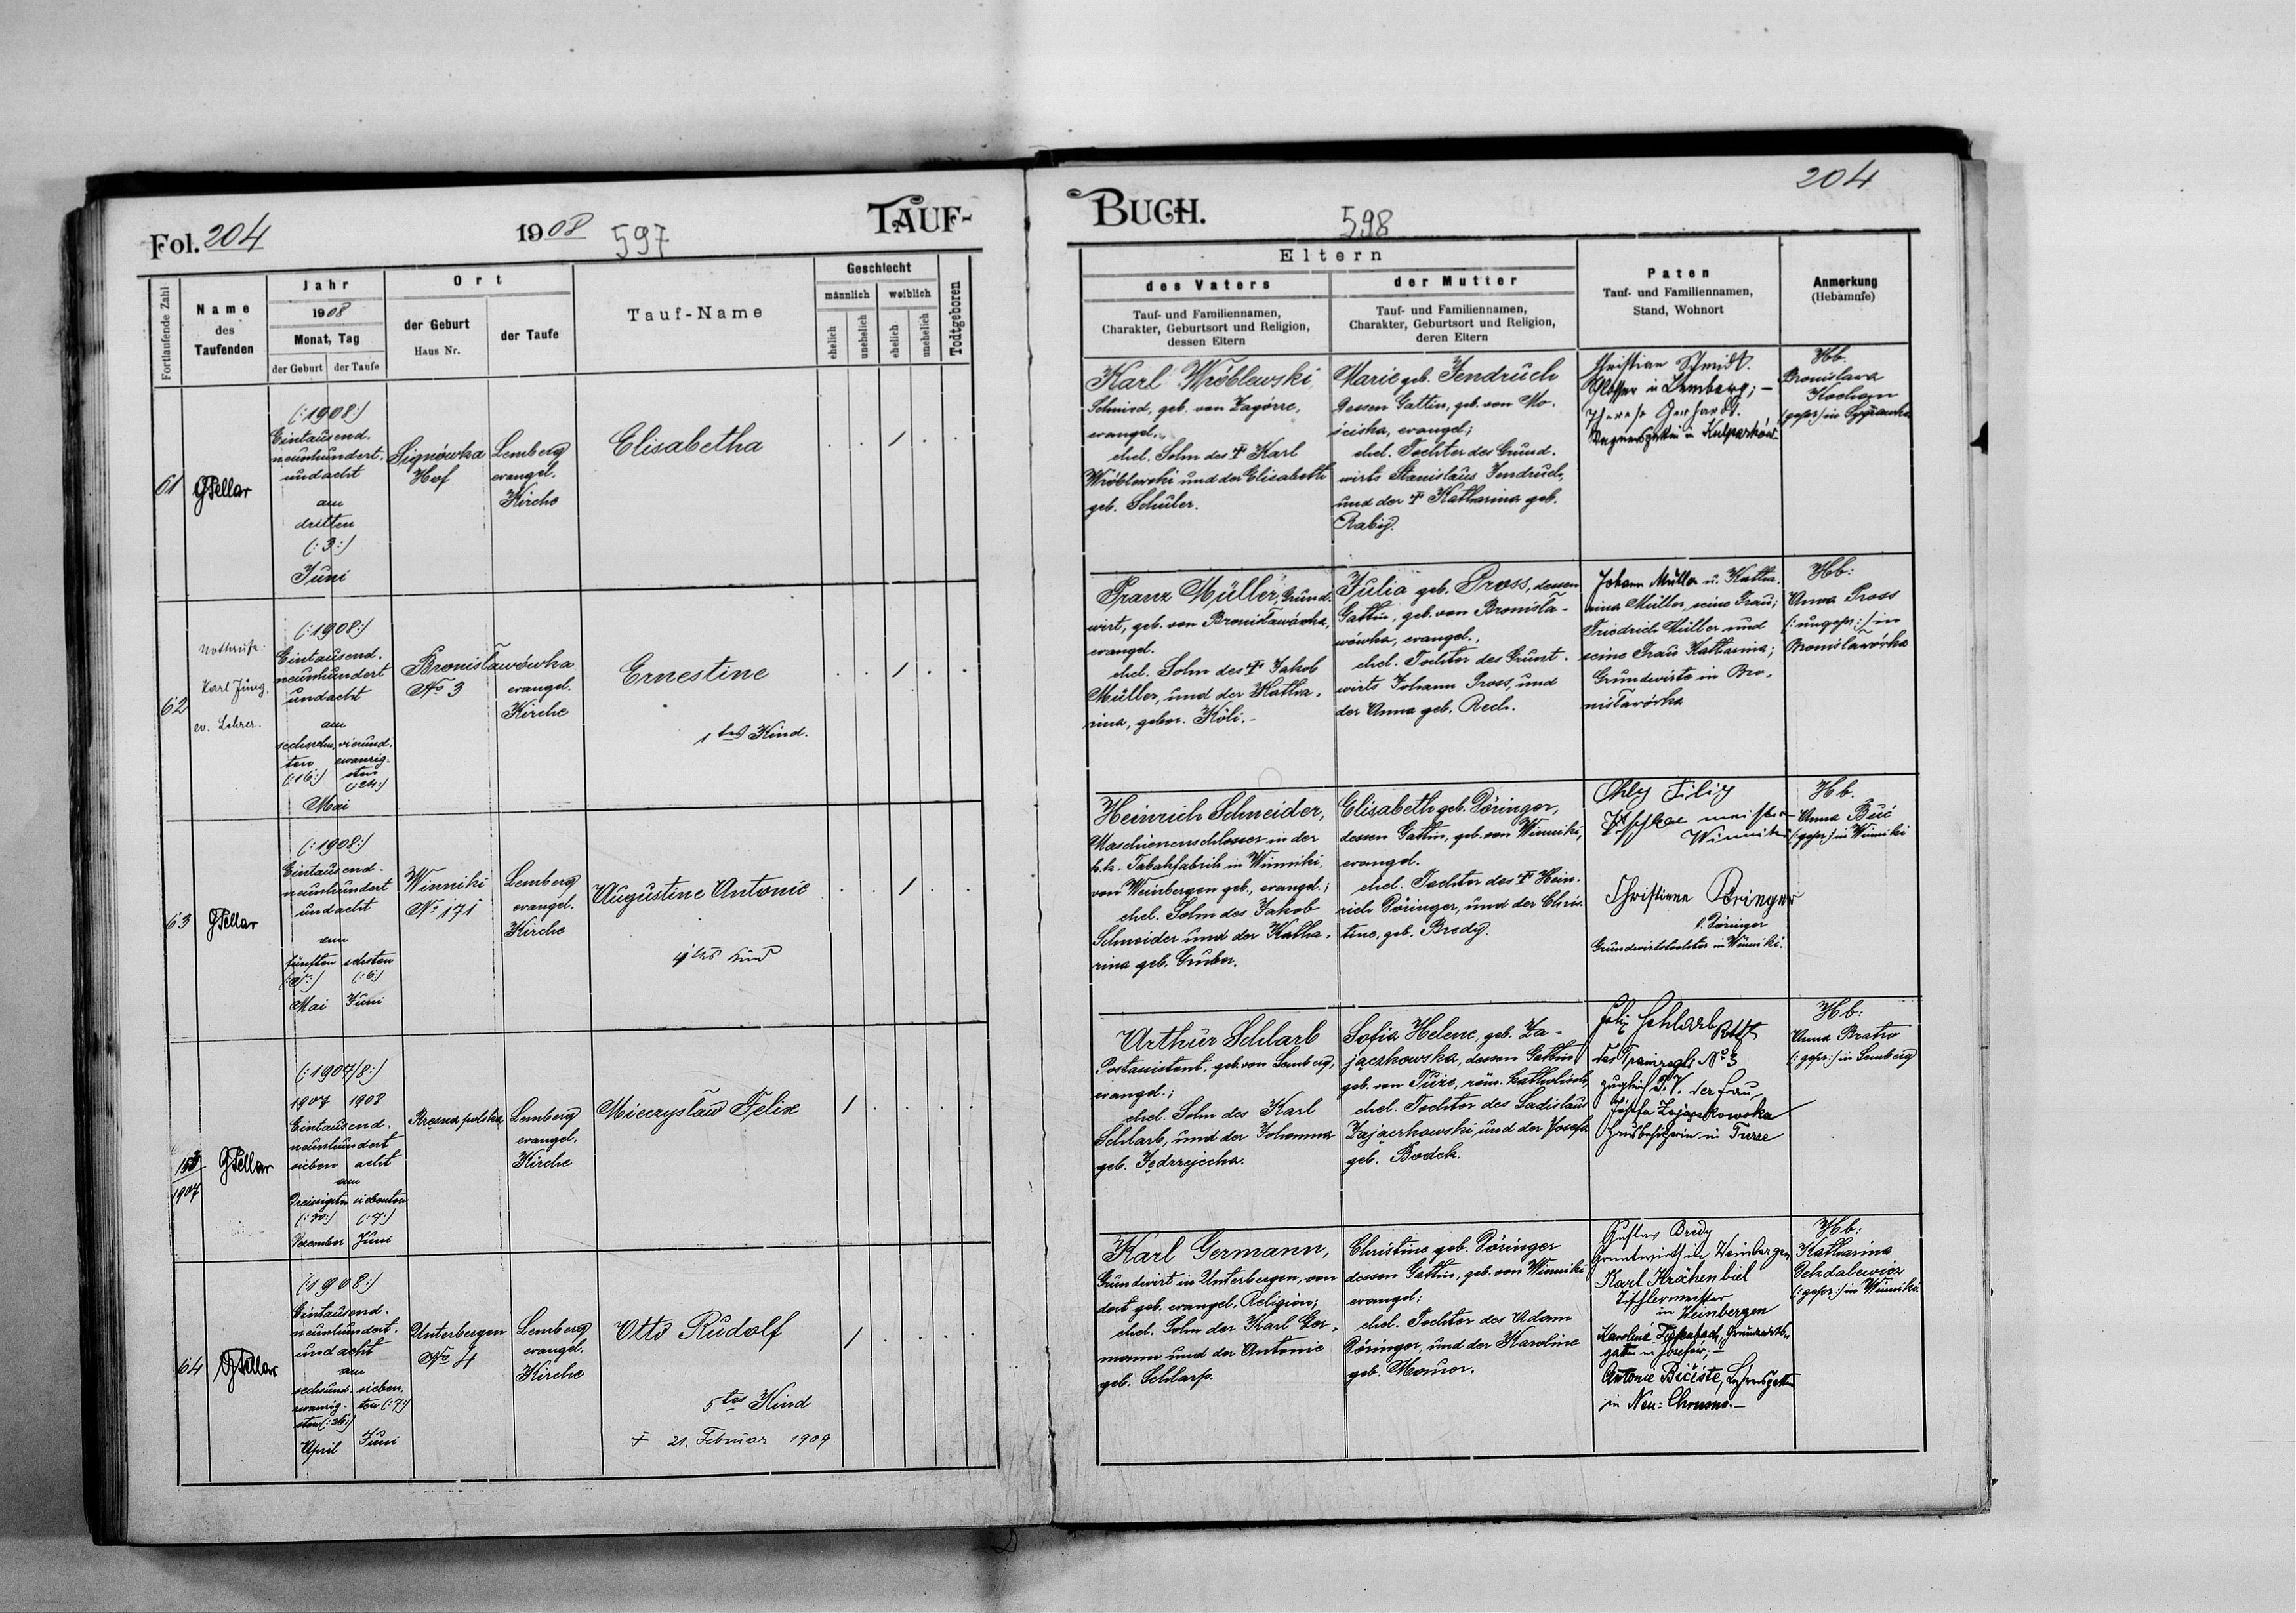 Fol. 204
1908
597
TAUF-
BUCH.
598
204
Fortlaufende Zahl
Name
des
Taufenden
Jahr
1908
Monat, Tag
der Geburt
der Taufe
Ort
der Geburt
Haus Nr.
der Taufe
Tauf-Name
Geschlecht
männlich
weiblich
ehelich
unehelich
ehelich
unehelich
Todtgeboren
Eltern
des Vaters
Tauf- und Familiennamen,
Charakter, Geburtsort und Religion,
dessen Eltern
der Mutter
Tauf- und Familiennamen,
Charakter, Geburtsort und Religion,
deren Eltern
Paten
Tauf- und Familiennamen,
Stand, Wohnort
Anmerkung
(Hebamme)
61
(:1908:)
Eintausend-
neunhundert-
undacht
am
dritten
(:3:)
Juni
Signówka
Hof
Lemberg
evangel.
Kirche
Elisabetha
Karl Wróblewski
Schmied, geb. von Zagórze,
evangel.
ehel. Sohn des † Karl
Wróblewski und der Elisabeth
geb. Schüler.
Marie geb. Jendruch
dessen Gattin, geb. von Mo-
ściska, evangel;
ehel. Tochter des Grund-
wirts Stanislaus Jendruch,
und der † Katharina geb.
Christian Schmidt.
Schlosser in Lemberg; –
Therese Gerhardt.
Hb.
Bronislawa
(:gepr:) in
62
Karl Jung,
ev. Lehrer.
(:1908:)
Eintausend-
neunhundert
undacht
am
sechzehn-
ten
(:16:)
vierund-
zwanzig-
sten
(:24:)
Mai
Bronisławówka
No 3
evangel.
Kirche
Ernestine
1tes Kind.
Franz Müller, Grund-
wirt, geb. von Bronisławówka,
evangel.
ehel. Sohn des † Jakob
Müller, und der Katha-
rina, gebor. Köli.-
Julia geb. Pross, dessen
Gattin, geb. von Bronisła-
wówka, evangel.,
ehel. Tochter des Grunt-
wirts Johann Pross, und
der Anna geb. Rech.
Johann Müller u. Katha-
rina Müller, seine Frau;
Friedrich Müller und
seine Frau Katharina;
Grundwirte in Bro-
nisławówka
Hb:
Anna Pross
(:ungepr:) in
Bronisławówka
63
(:1908:)
Eintausend-
neunhundert
undacht
am
fünften
(:5:)
Mai
sechsten
(:6:)
Juni
Winniki
No 171
Lemberg
evangel.
Kirche
Augustine Antonie
4tes Kind
Heinrich Schneider,
Maschienenschlosser in der
k.k. Tabakfabrik in Winniki,
von Weinbergen geb., evangel.;
ehel. Sohn des Jakob
Schneider und der Katha-
rina geb. Gruber.
Elisabeth geb. Döringer,
dessen Gattin, geb. von Winniki,
evangel.
ehel. Tochter des † Hein-
rich Döringer, und der Chris-
tine, geb. Bredy.
Winniki
Christianna Döringer
Döringer
Grundwirtstochter in Winniki.
Hb.
Anna
(:gepr:) in Winniki
153/1907
(:1907/8:)
1907 1908
Eintausend-
neunhundert
sieben acht
am
Dreissigsten siebenten
(:30:) (:7:)
Dezember Juni
Rzęsna polska
Lemberg
evangel.
Kirche
Mieczysław Felix
Arthur Schlarb
Postassistent, geb. von Lemberg,
evangel.;
ehel. Sohn des Karl
Schlarb, und der Johanna
geb. Jędrzejecka.
Sofia Helene, geb. Za-
jączkowska, dessen Gattin
geb. von Turze, röm. katholisch,
ehel. Tochter des Ladislaus
Zajączkowski und der Josefa
geb. Bodek.
Felix Schlarb
No 3
Josefa Zajączkowska
in Turze
Hb:
Anna Bratro
(:gepr:) in Lemberg
64
(:1908:)
Eintausend-
neunhundert-
undacht
am
sechsund-
zwanzig-
sten (:26:)
April
sieben-
ten (:7:)
Juni
Unterbergen
No 4
Lemberg
evangel.
Kirche
Otto Rudolf
5tes Kind
† 21. Februar 1909.
Karl Germann,
Grundwirt in Unterbergen, von
dort geb. evangel. Religion;
ehel. Sohn der Karl Ger-
mann und der Antonie
geb. Schlarp.
Christine geb. Döringer
dessen Gattin, geb. von Winniki
evangel;
ehel. Tochter des Adam
Döringer, und der Karoline
geb. Mourer.
Gustav Bredy
Grundwirth in Weinbergen
Karl Krähenbiel
Tischlermeister
in Weinbergen
Karoline
gattin in Josefów; –
Antonie
in Neu-Chrusno. –
Hb:
Katharina
(:gepr:) in Winniki.